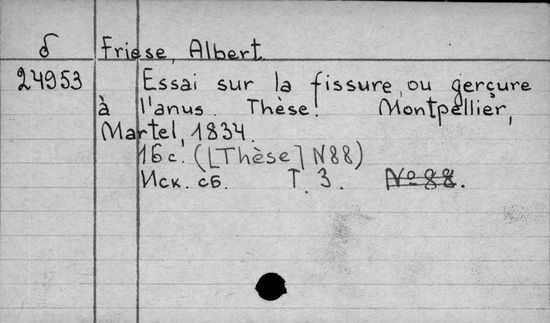 б Friese, Albert.
24953 Essai sur la fissure ou gerçure
à l'anus. Thèse. Montpellier,
Martel, 1834.
16 с. ([Thèse] N88)
Иск. сб. Т. 3. №88.